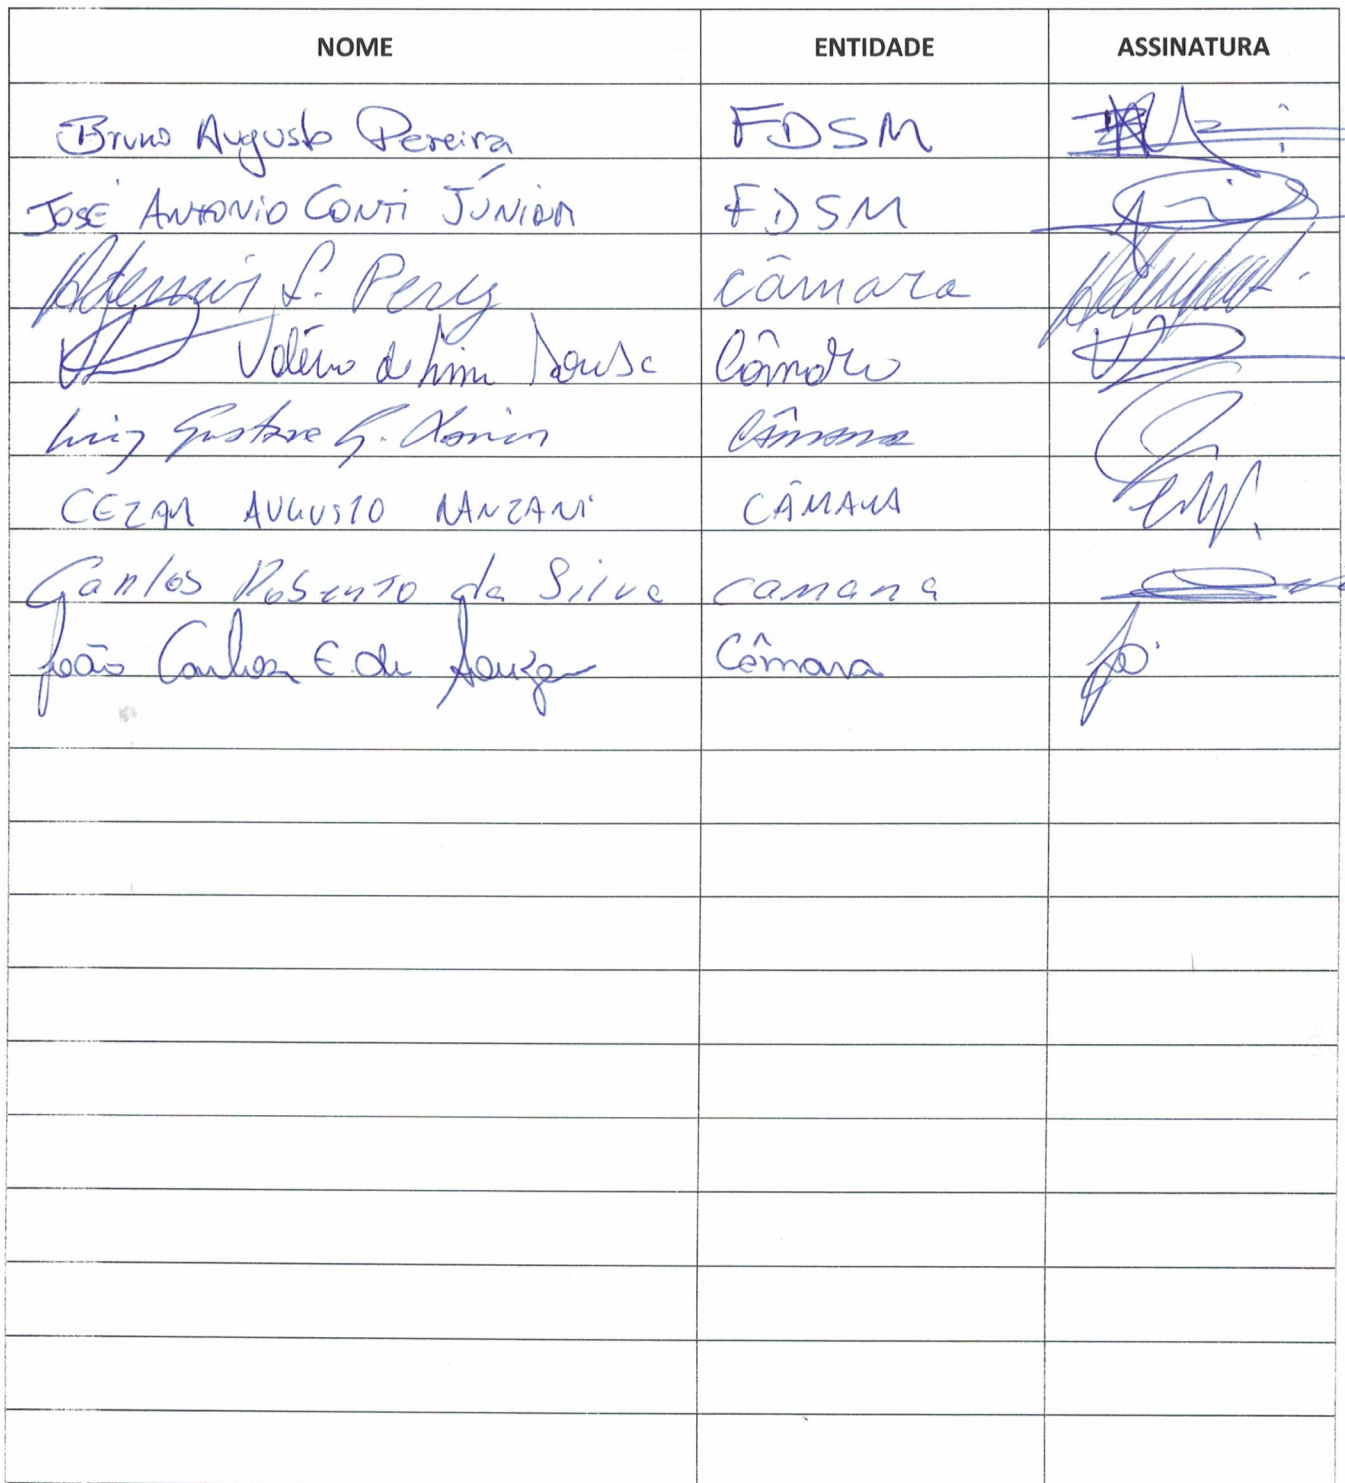 NOME ENTIDADE ASSINATURA
Bruno Augusto Pereira FDSM
JOSÉ ANTONIO CONTI JÚNIOR FDSM
L. Câmara
de Lima Sousa Câmara
Luiz Gustavo G. Câmara
CEZAR AUGUSTO CÂMARA
Carlos Roberto da Silva camara
João Carlos E. de Souza Câmara